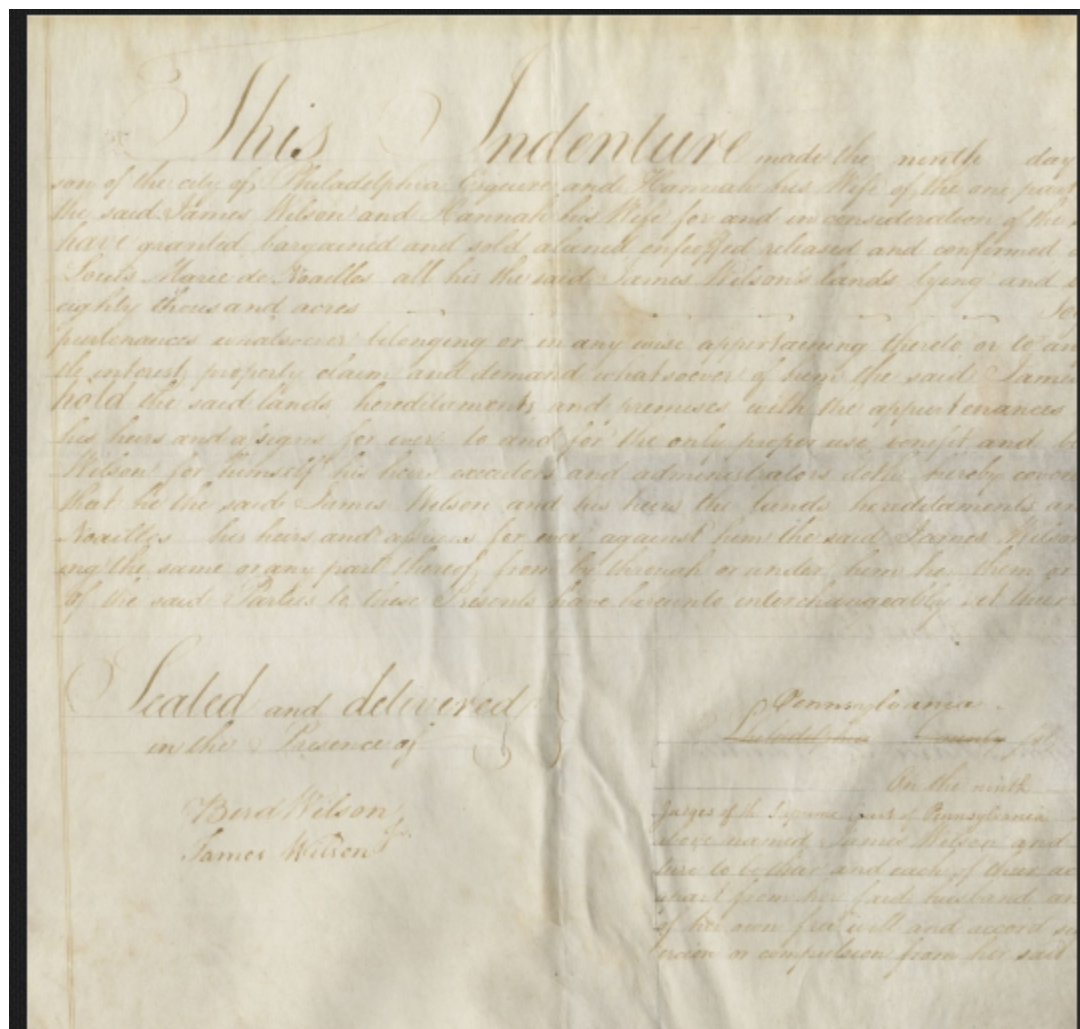 This Indenture made the ninth day
son of the city of Philadelphia Esquire and Hannah his Wife of the one part
the said James Wilson and Hannah his Wife for and in consideration of the
have granted bargained and sold aliened enfeoffed released and confirmed
Louis Marie de Noailles all his the said James Wilson's lands lying and
eighty thousand acres
purtenances whatsoever belonging or in any wise appertaining thereto or to an
the interest, property claim and demand whatsoever of him the said James
hold the said lands hereditaments and premises with the appurtenances
his heirs and assigns for ever to and for the only proper use, benefit and
Wilson for himself his heirs executors and administrators doth hereby coven
that he the said James Wilson and his heirs the lands hereditaments an
Noailles his heirs and assigns for ever against him the said James Wilson
ing the same or any part thereof, from by through or under him he them or
of the said Parties to these Presents have hereunto interchangeably set their
Sealed and delivered
in the Presence of
Bird Wilson
James Wilson Jr.
Pennsylvania
Philadelphia County
On the ninth
Judges of the Supreme Court of Pennsylvania
above named James Wilson and
ture to be their and each of their ac
apart from her said husband an
of her own free will and accord
ercion or compulsion from her said